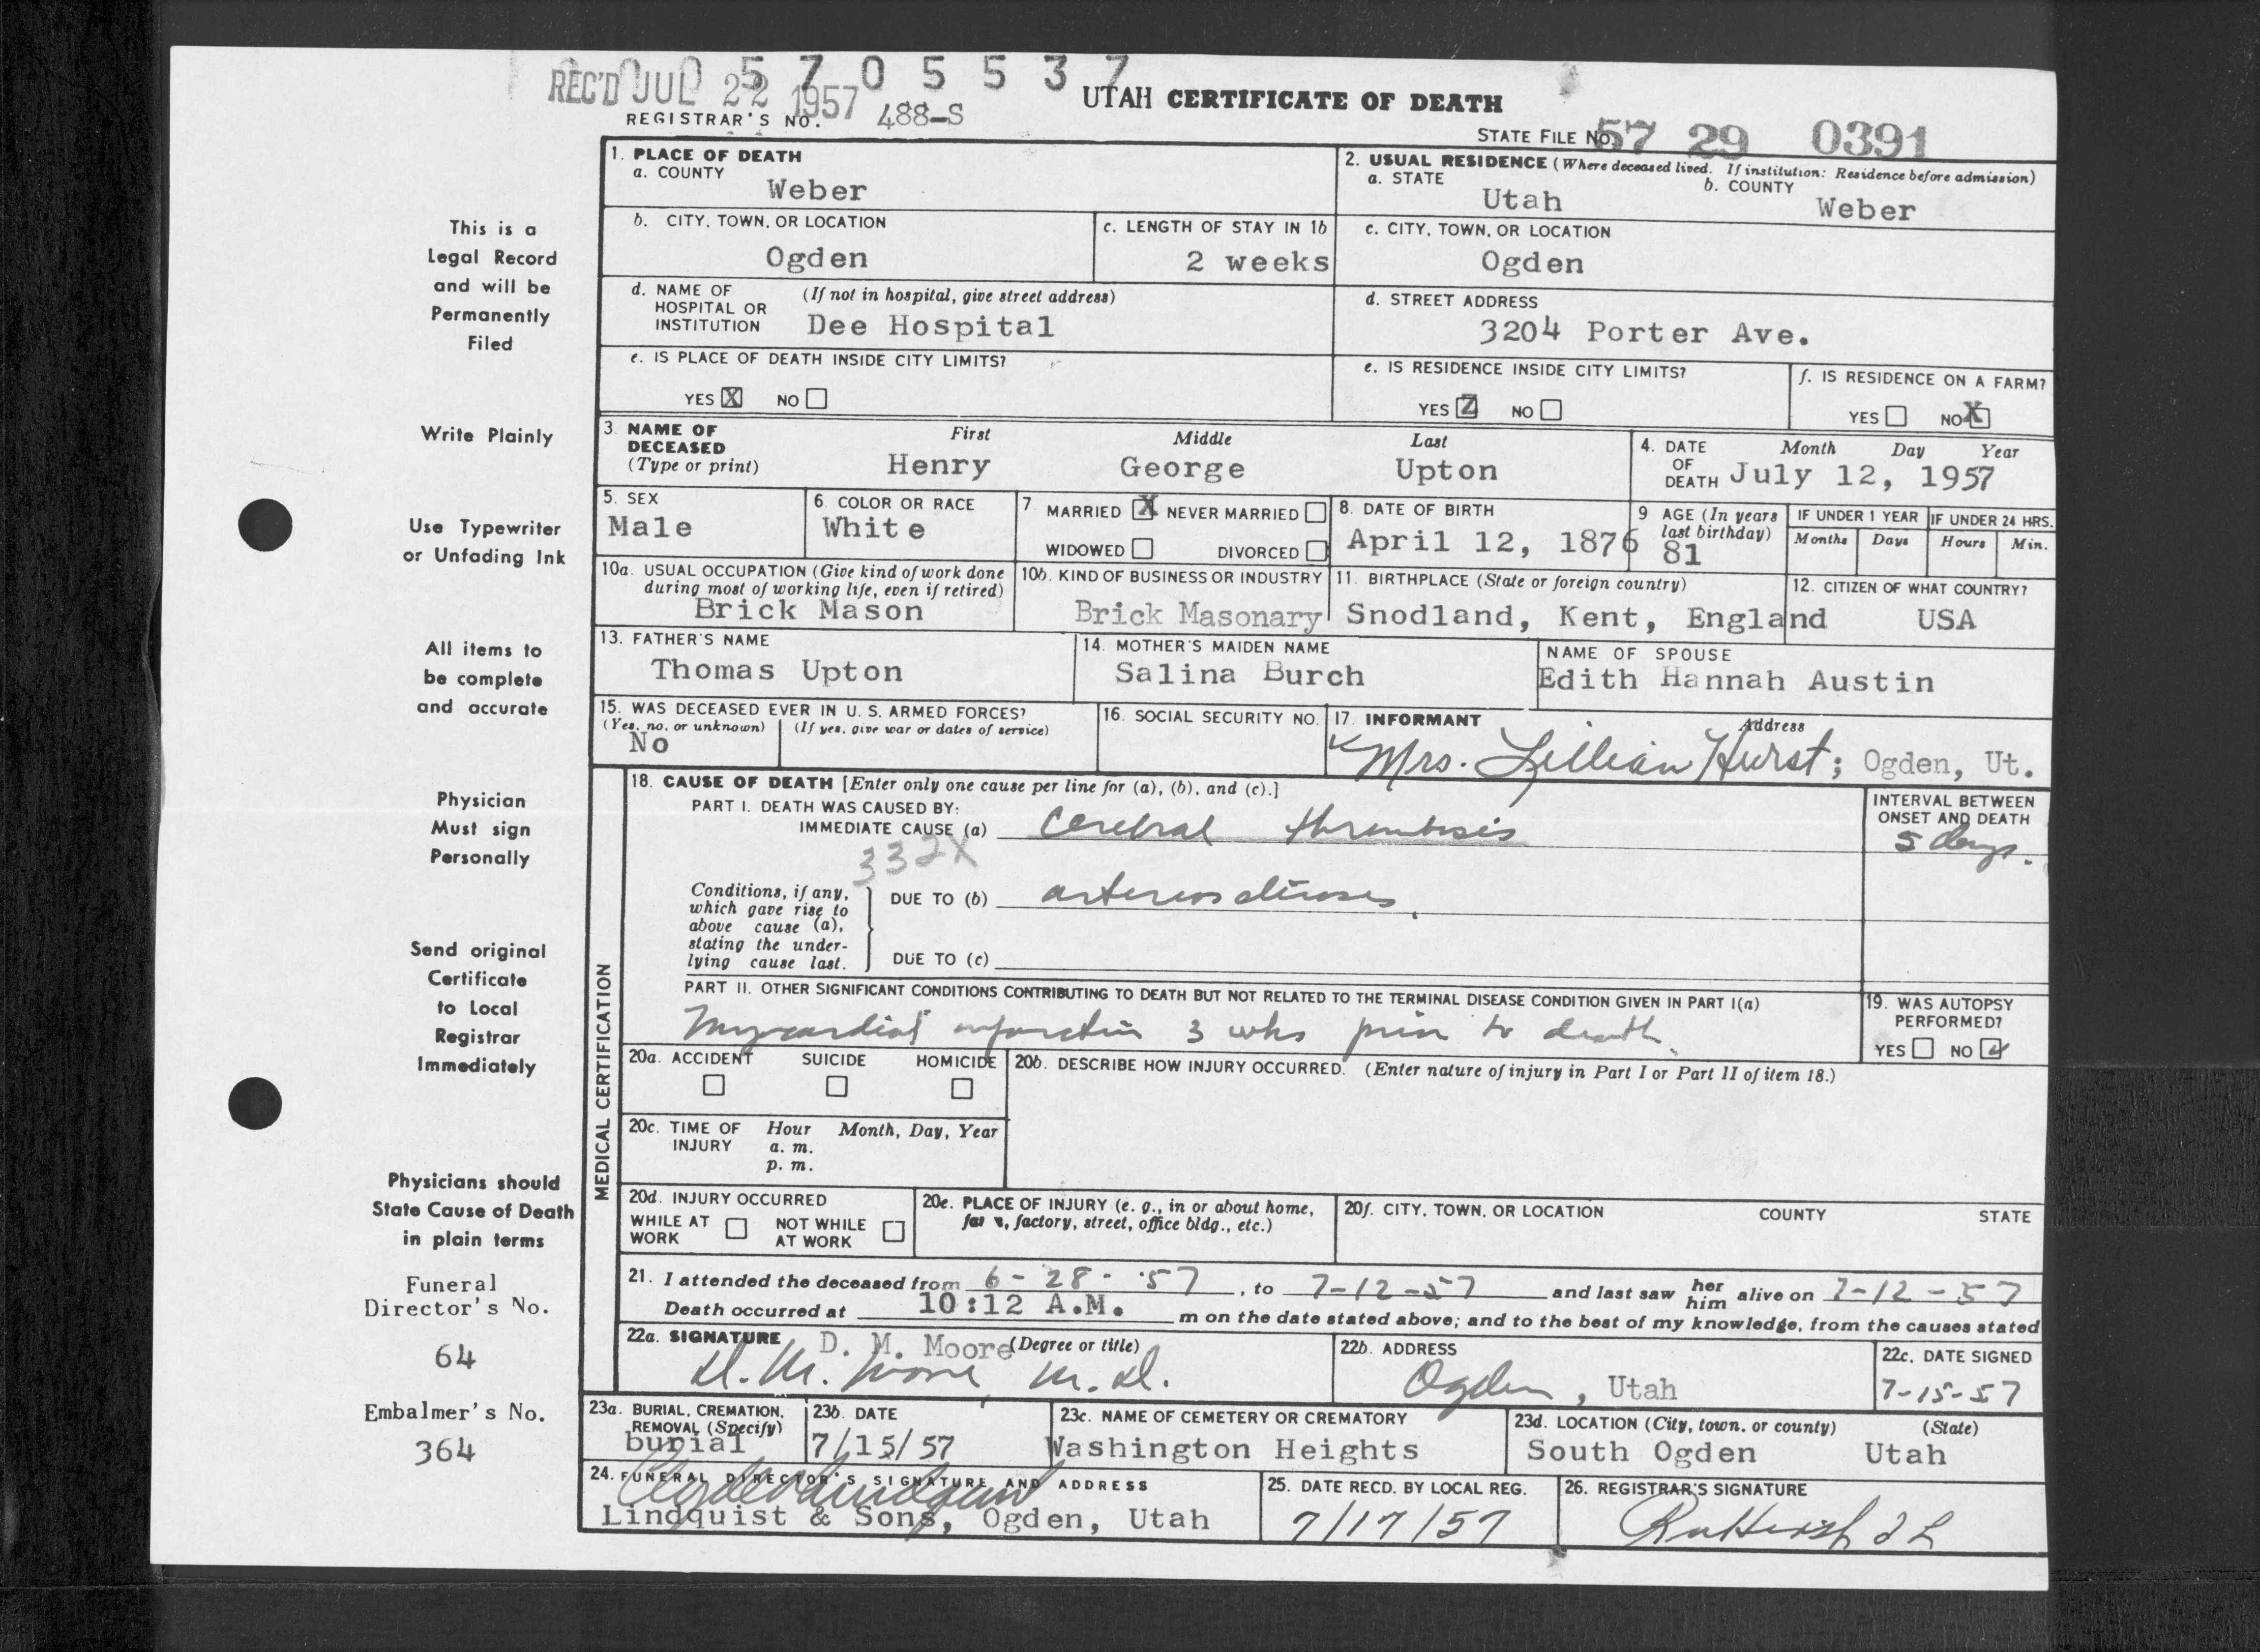 0 5 7 0 5 5 3 7
REC'D JUL 22 1957
REGISTRAR'S NO. 488-S
UTAH CERTIFICATE OF DEATH
STATE FILE NO. 57 29 0391
This is a
Legal Record
and will be
Permanently
Filed
Write Plainly
Use Typewriter
or Unfading Ink
All items to
be complete
and accurate
Physician
Must sign
Personally
Send original
Certificate
to Local
Registrar
Immediately
Physicians should
State Cause of Death
in plain terms
Funeral
Director's No.
64
Embalmer's No.
364
1. PLACE OF DEATH
a. COUNTY
Weber
2. USUAL RESIDENCE (Where deceased lived. If institution: Residence before admission)
a. STATE
Utah
b. COUNTY
Weber
b. CITY, TOWN, OR LOCATION
Ogden
c. LENGTH OF STAY IN 1b
2 weeks
c. CITY, TOWN, OR LOCATION
Ogden
d. NAME OF (If not in hospital, give street address)
HOSPITAL OR
INSTITUTION Dee Hospital
d. STREET ADDRESS
3204 Porter Ave.
e. IS PLACE OF DEATH INSIDE CITY LIMITS?
YES X NO
e. IS RESIDENCE INSIDE CITY LIMITS?
YES Z NO
f. IS RESIDENCE ON A FARM?
YES NO X
3. NAME OF DECEASED (Type or print)
First Middle Last
Henry George Upton
4. DATE OF DEATH Month Day Year
July 12, 1957
5. SEX
Male
6. COLOR OR RACE
White
7 MARRIED X NEVER MARRIED
WIDOWED DIVORCED
8. DATE OF BIRTH
April 12, 1876
9 AGE (In years last birthday)
81
IF UNDER 1 YEAR IF UNDER 24 HRS.
Months Days Hours Min.
10a. USUAL OCCUPATION (Give kind of work done
during most of working life, even if retired)
Brick Mason
10b. KIND OF BUSINESS OR INDUSTRY
Brick Masonary
11. BIRTHPLACE (State or foreign country)
Snodland, Kent, England
12. CITIZEN OF WHAT COUNTRY?
USA
13. FATHER'S NAME
Thomas Upton
14. MOTHER'S MAIDEN NAME
Salina Burch
NAME OF SPOUSE
Edith Hannah Austin
15. WAS DECEASED EVER IN U. S. ARMED FORCES?
(Yes, no, or unknown) (If yes, give war or dates of service)
No
16. SOCIAL SECURITY NO.
17. INFORMANT Address
Mrs. Lillian Hurst; Ogden, Ut.
MEDICAL CERTIFICATION
18. CAUSE OF DEATH [Enter only one cause per line for (a), (b), and (c).]
PART I. DEATH WAS CAUSED BY:
IMMEDIATE CAUSE (a) Cerebral thrombosis
332X
INTERVAL BETWEEN
ONSET AND DEATH
5 days.
Conditions, if any,
which gave rise to
above cause (a),
stating the under-
lying cause last.
DUE TO (b) arteriosclerosis
DUE TO (c)
PART II. OTHER SIGNIFICANT CONDITIONS CONTRIBUTING TO DEATH BUT NOT RELATED TO THE TERMINAL DISEASE CONDITION GIVEN IN PART I(a)
Myocardial infarction 3 wks prior to death.
19. WAS AUTOPSY
PERFORMED?
YES NO
20a. ACCIDENT SUICIDE HOMICIDE
20b. DESCRIBE HOW INJURY OCCURRED. (Enter nature of injury in Part I or Part II of item 18.)
20c. TIME OF INJURY Hour Month, Day, Year
a. m.
p. m.
20d. INJURY OCCURRED
WHILE AT WORK NOT WHILE AT WORK
20e. PLACE OF INJURY (e. g., in or about home,
farm, factory, street, office bldg., etc.)
20f. CITY, TOWN, OR LOCATION COUNTY STATE
21. I attended the deceased from 6-28-'57, to 7-12-57 and last saw her him alive on 7-12-57
Death occurred at 10:12 A.M. m on the date stated above; and to the best of my knowledge, from the causes stated
22a. SIGNATURE D. M. Moore (Degree or title)
D. M. Moore, M.D.
22b. ADDRESS
Ogden, Utah
22c. DATE SIGNED
7-15-57
23a. BURIAL, CREMATION,
REMOVAL (Specify)
burial
23b. DATE
7/15/57
23c. NAME OF CEMETERY OR CREMATORY
Washington Heights
23d. LOCATION (City, town, or county) (State)
South Ogden Utah
24. FUNERAL DIRECTOR'S SIGNATURE AND ADDRESS
Lindquist & Sons, Ogden, Utah
25. DATE RECD. BY LOCAL REG.
7/17/57
26. REGISTRAR'S SIGNATURE